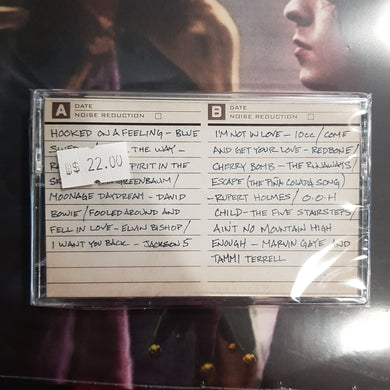 A DATE
NOISE REDUCTION
HOOKED ON A FEELING - BLUE
THE WAY -
SPIRIT IN THE
GREENBAUM/
MOONAGE DAYDREAM - DAVID
BOWIE/FOOLED AROUND AND
FELL IN LOVE - ELVIN BISHOP/
I WANT YOU BACK - JACKSON 5
B$ 22.00
B DATE
NOISE REDUCTION
I'M NOT IN LOVE - 10CC/COME
AND GET YOUR LOVE - REDBONE/
CHERRY BOMB - THE RUNAWAYS/
ESCAPE (THE PIÑA COLADA SONG)
- RUPERT HOLMES/O-O-H
CHILD - THE FIVE STAIRSTEPS/
AIN'T NO MOUNTAIN HIGH
ENOUGH - MARVIN GAYE AND
TAMMI TERRELL